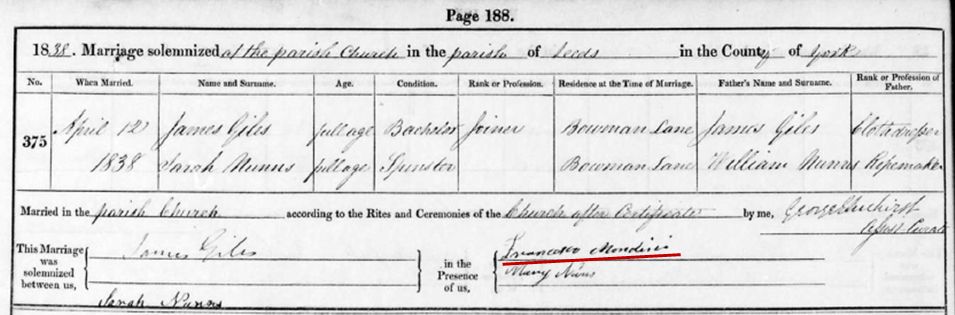 Page 188.
1838. Marriage solemnized at the parish Church in the parish of Leeds in the County of York
No. When Married. Name and Surname. Age. Condition. Rank or Profession. Residence at the Time of Marriage. Father's Name and Surname. Rank or Profession of Father.
375 April 12 James Giles full age Bachelor Joiner Bowman Lane James Giles Clothdresser
1838 Sarah Nunns full age Spinster Bowman Lane William Nunns Ropemaker
Married in the parish Church according to the Rites and Ceremonies of the Church after Certificate by me, George
Curate
This Marriage was solemnized between us, James Giles in the Presence of us, Francesco
Mary Nunns
Sarah Nunns